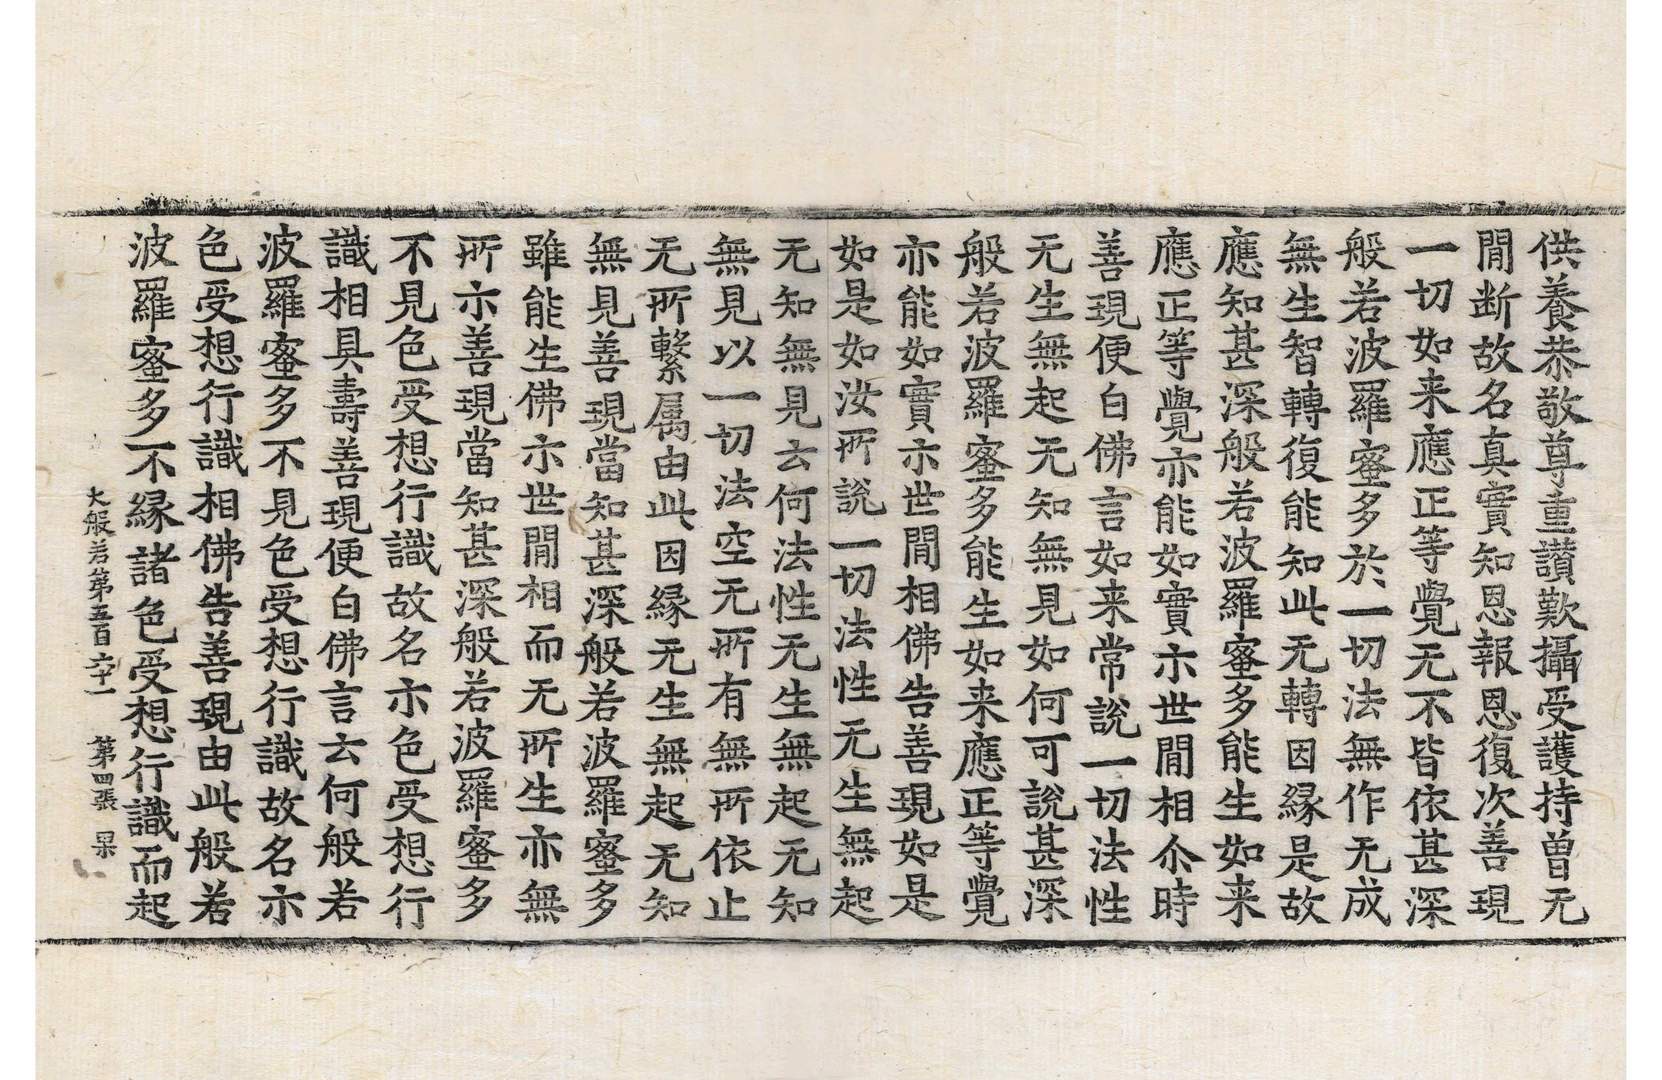 供養恭敬尊重讃歎攝受護持曾无
閒断故名真實知恩報恩復次善現
一切如来應正等覺无不皆依甚深
般若波羅蜜多於一切法無作无成
無生智轉復能知此无轉因縁是故
應知甚深般若波羅蜜多能生如来
應正等覺亦能如實示世閒相尒時
善現便白佛言如来常說一切法性
无生無起无知無見如何可說甚深
般若波羅蜜多能生如来應正等覺
亦能如實示世閒相佛告善現如是
如是如汝所說一切法性无生無起
无知無見云何法性无生無起无知
無見以一切法空无所有無所依止
无所繫属由此因縁无生無起无知
無見善現當知甚深般若波羅蜜多
雖能生佛示世閒相而无所生亦無
所示善現當知甚深般若波羅蜜多
不見色受想行識故名示色受想行
識相具壽善現便白佛言云何般若
波羅蜜多不見色受想行識故名示
色受想行識相佛告善現由此般若
波羅蜜多不縁諸色受想行識而起
大般若第五百六十一 第四張 杲